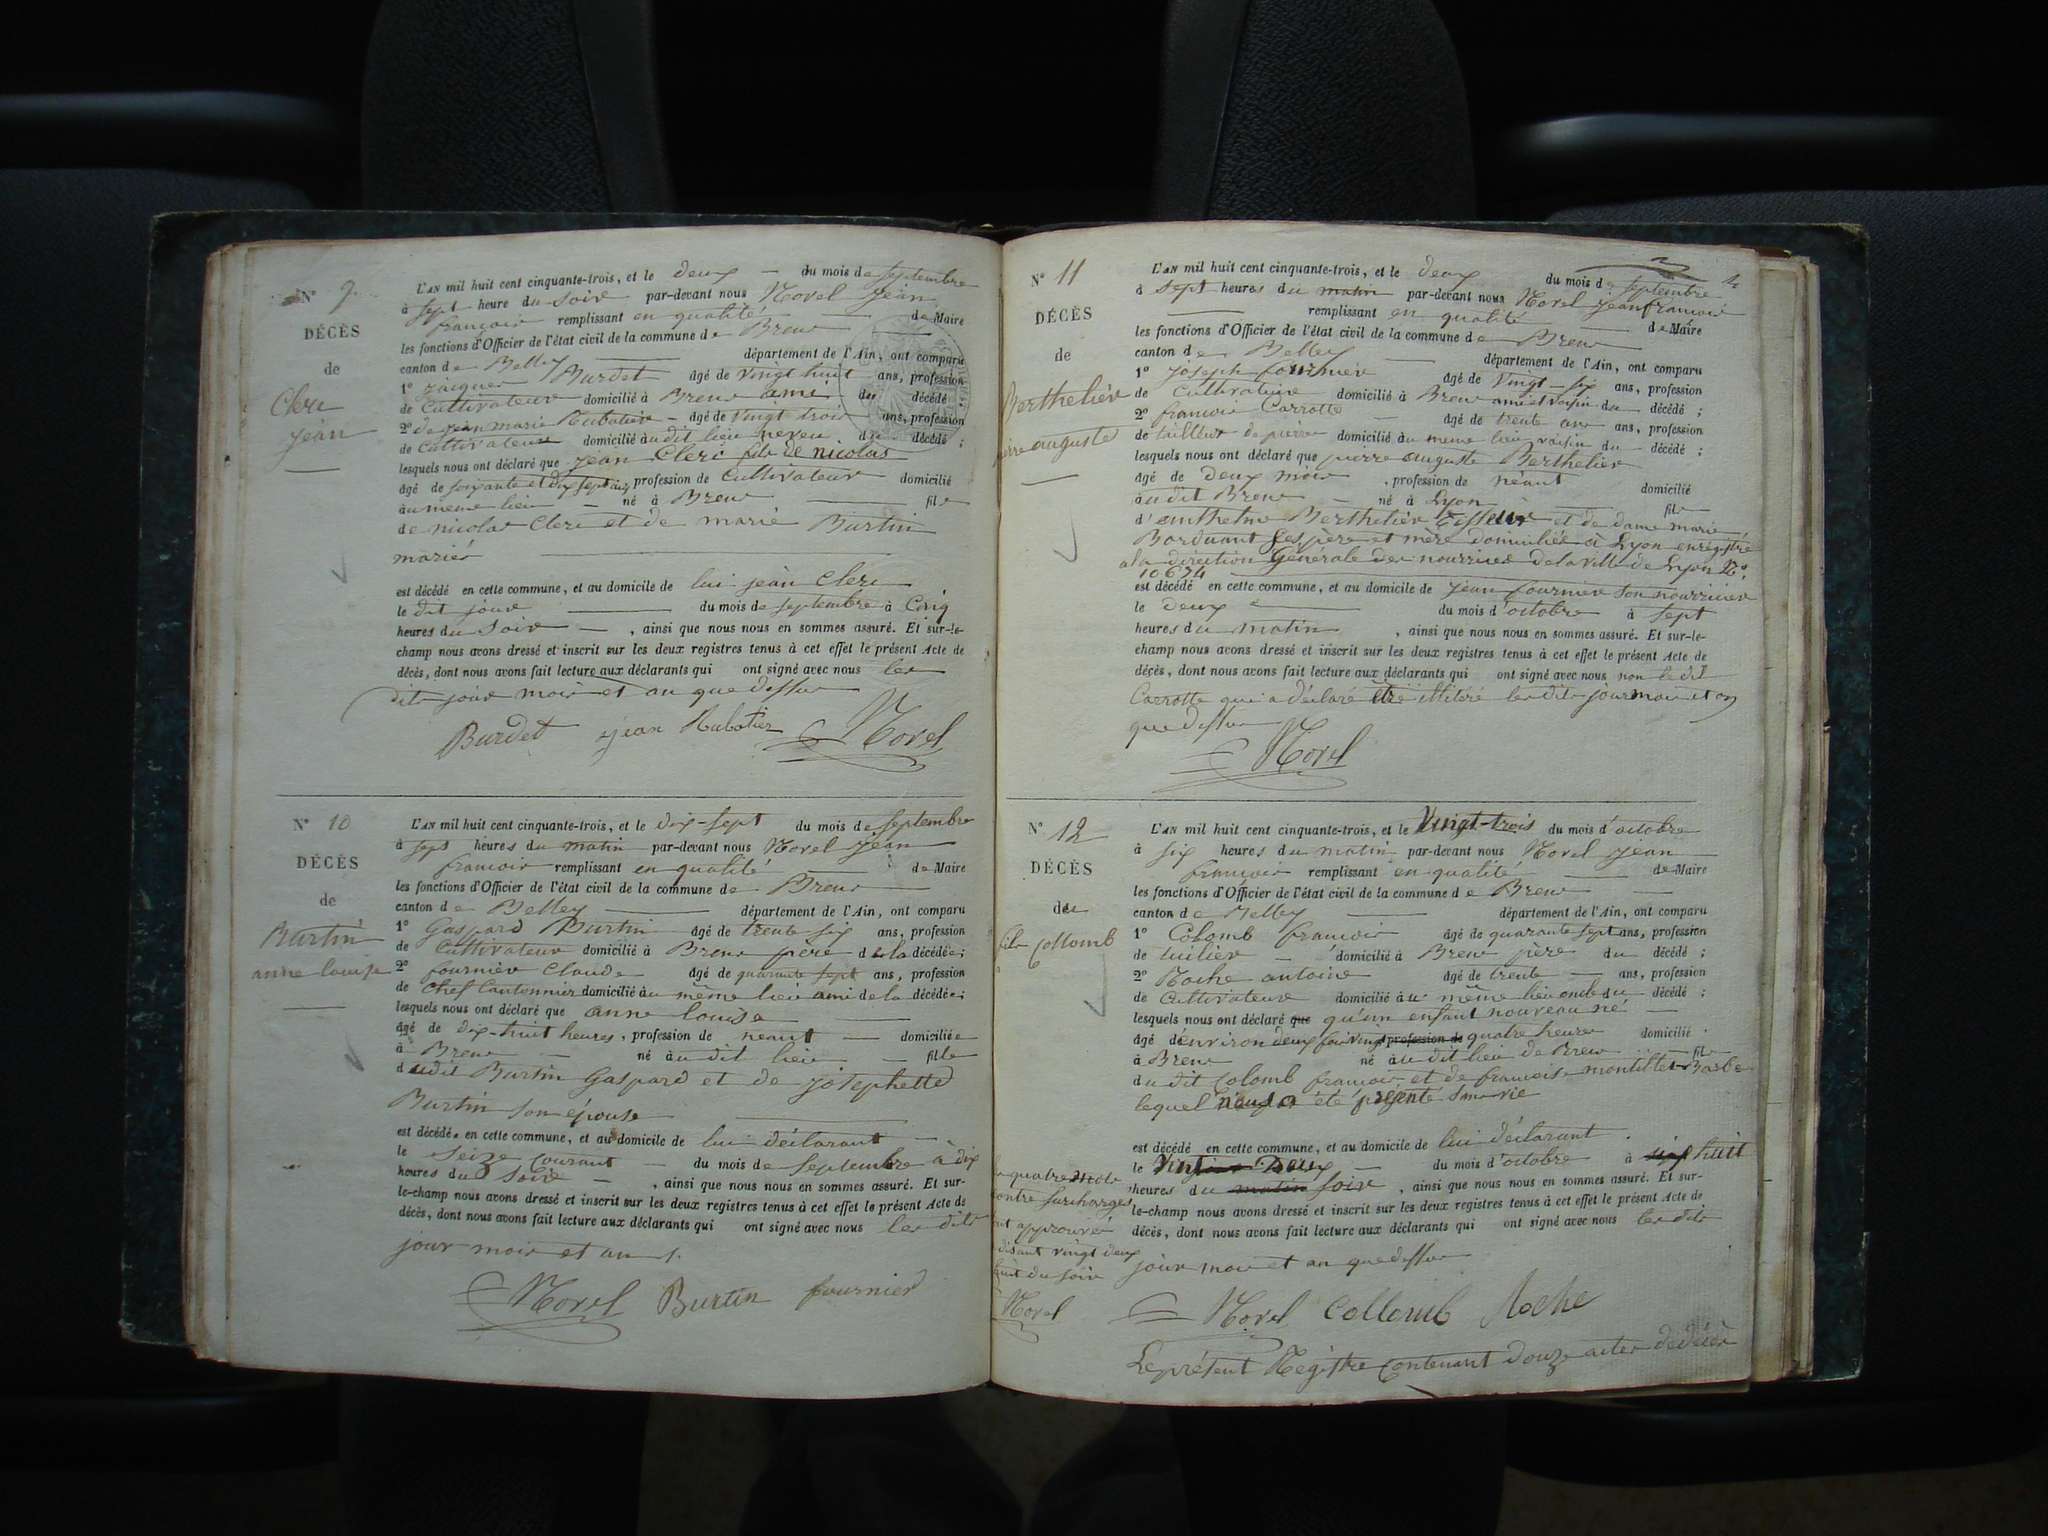 N° 9.
DÉCÈS
de
Clerc
jean
L'AN mil huit cent cinquante-trois, et le deux du mois de septembre
à sept heure du soir par-devant nous Morel jean
françois remplissant en qualité de Maire
les fonctions d'Officier de l'état civil de la commune de Brens
canton de Belley département de l'Ain, ont comparu
1° jacques Burdet agé de vingt huit ans, profession
de Cultivateur domicilié à Brens ami du décédé
2° de jean marie Rubatier agé de vingt trois ans, profession
de Cultivateur domicilié au dit lieu neveu du décédé ;
lesquels nous ont déclaré que jean Clerc fils de nicolas
agé de soixante et dix sept ans, profession de Cultivateur domicilié
au meme lieu né à Brens fils
de nicolas Clerc et de marie Burtin
mariés
est décédé en cette commune, et au domicile de lui jean Clerc
le dit jour du mois de septembre à Cinq
heures du soir , ainsi que nous nous en sommes assuré. Et sur-le-
champ nous avons dressé et inscrit sur les deux registres tenus à cet effet le présent Acte de
décès, dont nous avons fait lecture aux déclarants qui ont signé avec nous les
dits jour mois et an que dessus
Burdet jean Rubatier Morel
N° 10
DÉCÈS
de
Burtin
anne louise
L'AN mil huit cent cinquante-trois, et le dix-sept du mois de septembre
à sept heures du matin par-devant nous Morel jean
françois remplissant en qualité de Maire
les fonctions d'Officier de l'état civil de la commune de Brens
canton de Belley département de l'Ain, ont comparu
1° Gaspard Burtin agé de trente six ans, profession
de Cultivateur domicilié à Brens père de la décédée ;
2° fournier Claude agé de quarante sept ans, profession
de chef Cantonnier domicilié au même lieu ami de la décédée ;
lesquels nous ont déclaré que anne louise
agé de dix-huit heures, profession de néant domiciliée
à Brens né au dit lieu fille
du dit Burtin Gaspard et de josephette
Burtin son épouse
est décédé en cette commune, et au domicile de lui déclarant
le seize courant du mois de septembre à dix
heures du soir , ainsi que nous nous en sommes assuré. Et sur-
le-champ nous avons dressé et inscrit sur les deux registres tenus à cet effet le présent Acte de
décès, dont nous avons fait lecture aux déclarants qui ont signé avec nous les dits
jour mois et an
Morel Burtin fournier
N° 11
DÉCÈS
de
Berthelier
auguste
L'AN mil huit cent cinquante-trois, et le deux du mois de septembre
à sept heures du matin par-devant nous Morel jean françois
remplissant en qualité de Maire
les fonctions d'Officier de l'état civil de la commune de Brens
canton de Belley département de l'Ain, ont comparu
1° joseph fournier agé de vingt-six ans, profession
de Cultivateur domicilié à Brens ami et voisin du décédé ;
2° françois Carrotte agé de trente ans ans, profession
de tailleur de pierre domicilié au meme lieu voisin du décédé ;
lesquels nous ont déclaré que pierre auguste Berthelier
agé de deux mois , profession de néant domicilié
au dit Brens né à Lyon fils
d'anthelme Berthelier Tisseur et de dame marie
Borduant ses père et mère domiciliés à Lyon enregistré
a la direction Générale des nourrices de la ville de Lyon N°.
10654
est décédé en cette commune, et au domicile de jean fournier son nourricier
le deux du mois d'octobre à sept
heures du matin , ainsi que nous nous en sommes assuré. Et sur-le-
champ nous avons dressé et inscrit sur les deux registres tenus à cet effet le présent Acte de
décès, dont nous avons fait lecture aux déclarants qui ont signé avec nous non le dit
Carrotte qui a déclaré être illitéré les dits jour mois et an
que dessus
Morel
N° 12
DÉCÈS
du
fils Collomb
L'AN mil huit cent cinquante-trois, et le Vingt-trois du mois d'octobre
à six heures du matin par-devant nous Morel jean
françois remplissant en qualité de Maire
les fonctions d'Officier de l'état civil de la commune de Brens
canton de Belley département de l'Ain, ont comparu
1° Colomb françois agé de quarante sept ans, profession
de tuilier domicilié à Brens père du décédé ;
2° Roche antoine agé de trente ans, profession
de Cultivateur domicilié au même lieu oncle du décédé ;
lesquels nous ont déclaré que qu'un enfant nouveau né
agé d'environ deux fois vingt profession de quatre heures domicilié
à Brens né au dit lieu de Brens fils
du dit Colomb françois et de françoise montillet Barbe
lequel nous a été présenté sans vie
est décédé en cette commune, et au domicile de lui déclarant
le Vingt Deux du mois d'octobre à six huit
heures du matin soir , ainsi que nous nous en sommes assuré. Et sur-
le-champ nous avons dressé et inscrit sur les deux registres tenus à cet effet le présent Acte de
décès, dont nous avons fait lecture aux déclarants qui ont signé avec nous les dits
jour mois et an que dessus
quatre mots
contre surchargés
approuvés
disant vingt deux
huit du soir
Morel
Morel Collomb Roche
Le présent Registre contenant douze actes de décès